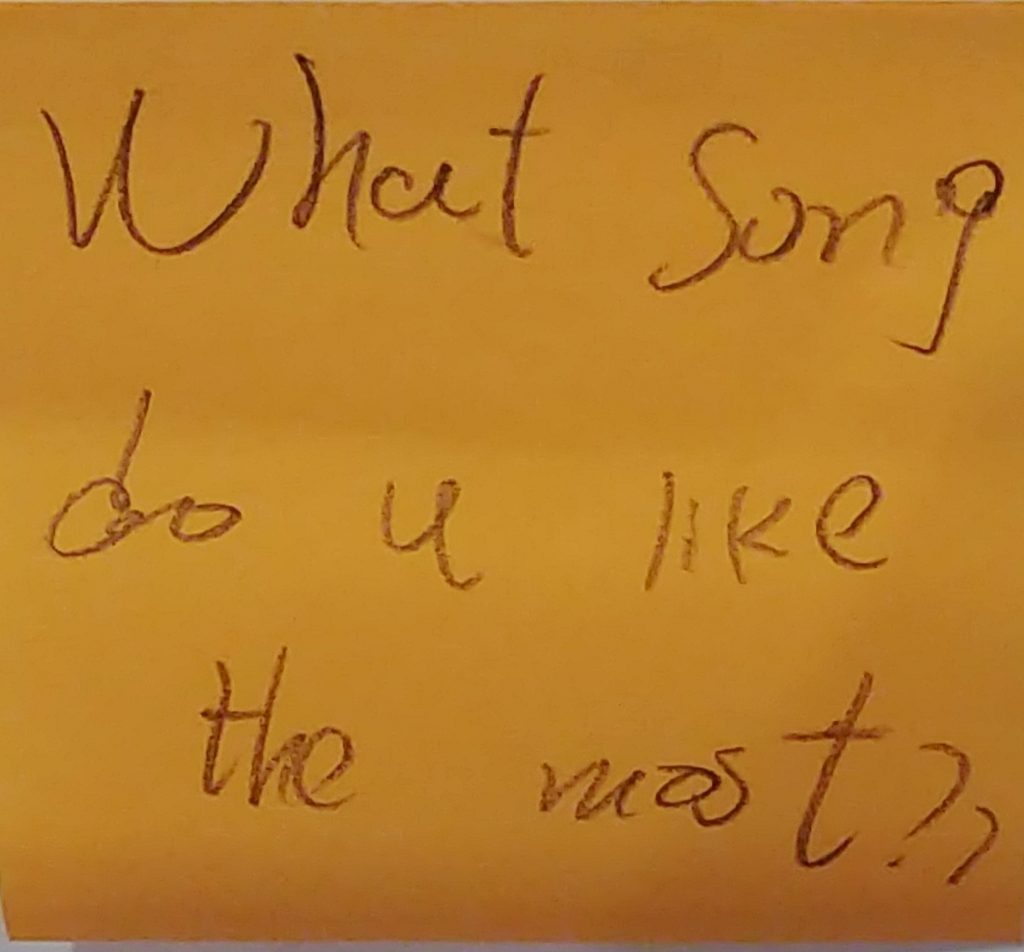 What song
do u like
the most??